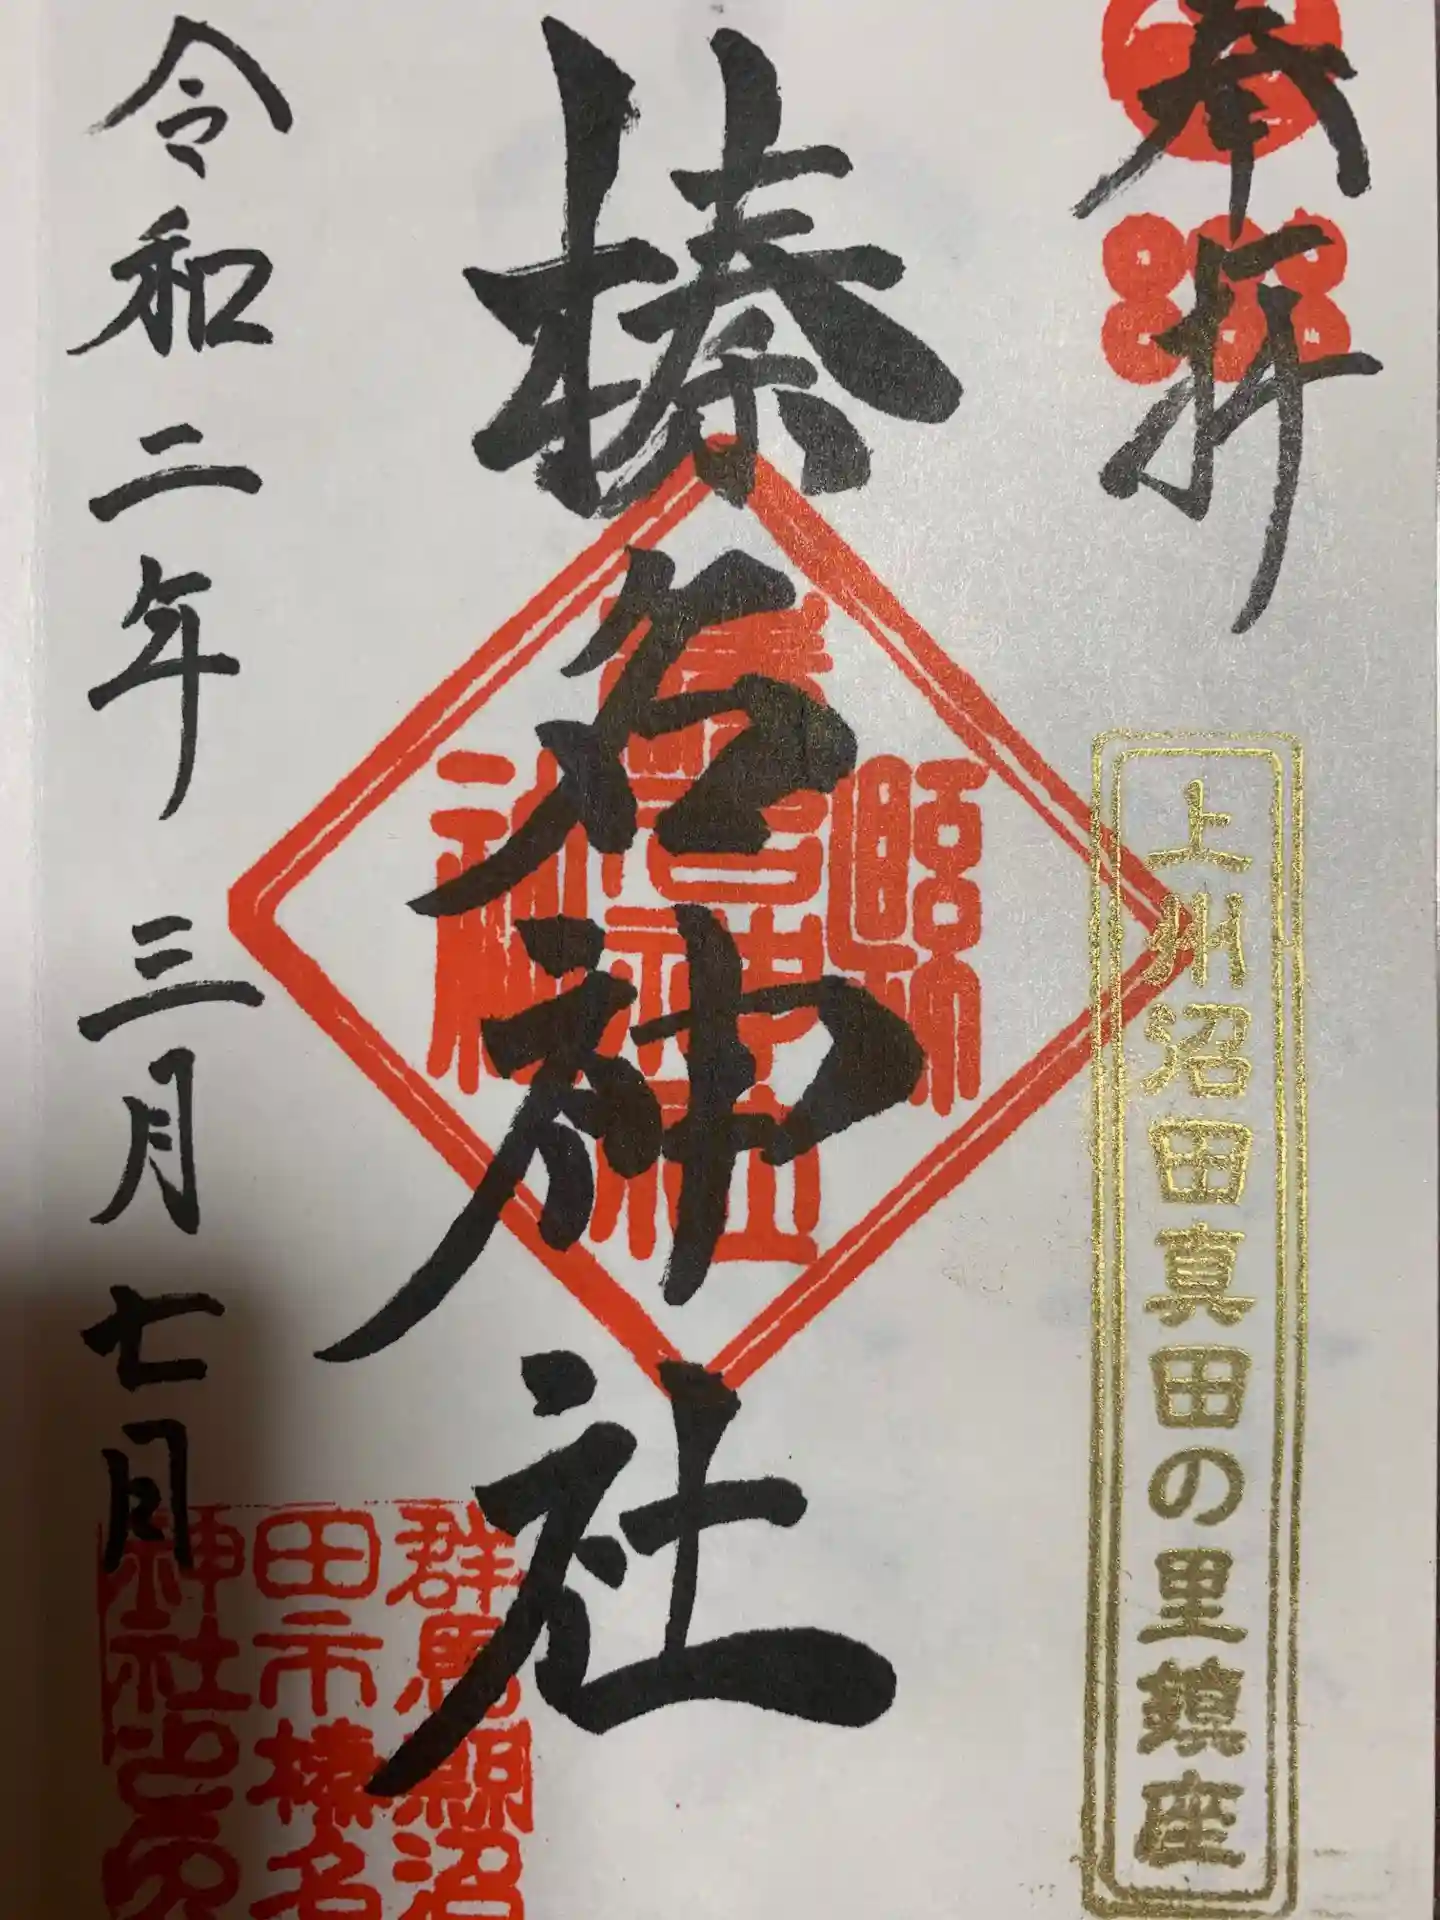 奉拝
上州沼田真田の里鎮座
榛名神社
令和二年 三月七日
群馬縣沼
田市榛名
神社